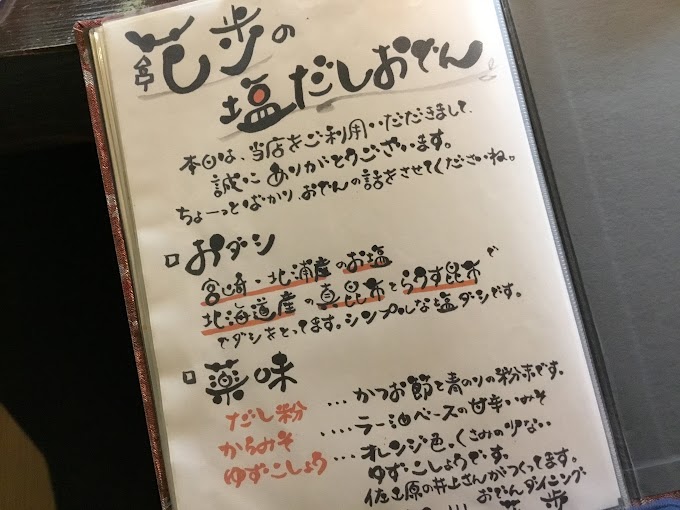 花歩の
塩だしおでん
本日は、当店をご利用いただきまして、
誠にありがとうございます。
ちょーっとばかり、おでんの話をさせてくださいね。
おダシ
宮崎・北浦産のお塩で
北海道産の真昆布とらうす昆布
でダシをとってます。シンプルな塩ダシです。
薬味
だし粉 ...かつお節と青のりの粉末です。
からみそ ....ラー油ベースの甘辛いみそ
ゆずこしょう ...オレンジ色。くさみの少ない
ゆずこしょうです。
佐土原の井上さんがつくってます。
おでんダイニング
歩